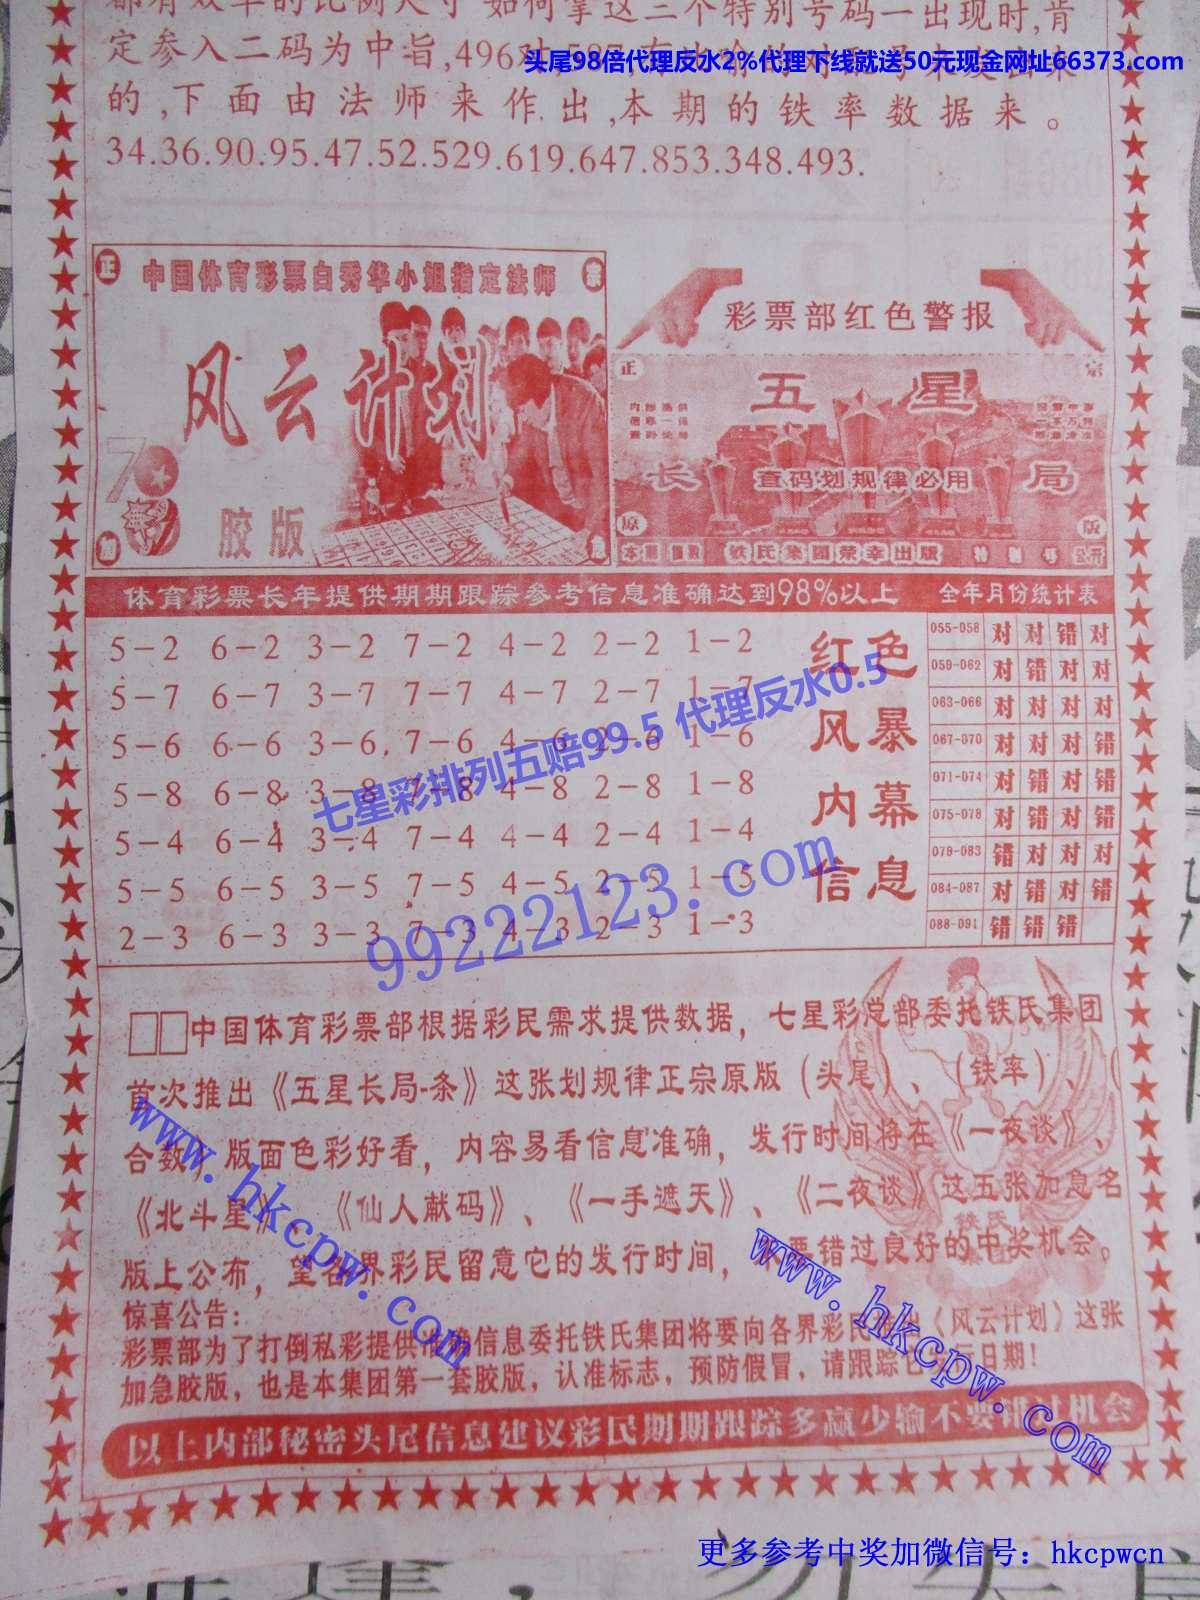 都有效率的比例尺寸 如何掌这三个特别号码一出现时,肯
定参入二码为中旨,496对,587,
头尾98倍代理反水2%代理下线就送50元现金网址66373.com
的,下面由法师来作出,本期的铁率数据来。
34.36.90.95.47.52.529.619.647.853.348.493.
正 中国体育彩票白秀华小姐指定法师 宗
风云计划
胶版
彩票部红色警报
正 五星 宗
长 查码划规律必用 局
原 版
铁氏集团荣幸出版
体育彩票长年提供期期跟踪参考信息准确达到98%以上 全年月份统计表
5-2 6-2 3-2 7-2 4-2 2-2 1-2
5-7 6-7 3-7 7-7 4-7 2-7 1-7
5-6 6-6 3-6 7-6 4-6 2-6 1-6
5-8 6-8 3-8 7-8 4-8 2-8 1-8
5-4 6-4 3-4 7-4 4-4 2-4 1-4
5-5 6-5 3-5 7-5 4-5 2-5 1-5
2-3 6-3 3-3 7-3 4-3 2-3 1-3
红色
风暴
内幕
信息
055-058 对 对 错 对
059-062 对 错 对 对
063-066 对 对 对 对
067-070 对 对 对 错
071-074 对 错 对 错
075-078 对 错 对 错
079-083 错 对 对 对
084-087 对 错 对 错
088-091 错 错 错
七星彩排列五赔99.5 代理反水0.5
99222123.com
□□中国体育彩票部根据彩民需求提供数据，七星彩总部委托铁氏集团
首次推出《五星长局-条》这张划规律正宗原版（头尾）、（铁率）、（
合数），版面色彩好看，内容易看信息准确，发行时间将在《一夜谈》、
《北斗星》、《仙人献码》、《一手遮天》、《二夜谈》这五张加急名
版上公布，望各界彩民留意它的发行时间，不要错过良好的中奖机会。
铁氏
www.hkcpw.com
www.hkcpw.com
惊喜公告：
彩票部为了打倒私彩提供准确信息委托铁氏集团将要向各界彩民《风云计划》这张
加急胶版，也是本集团第一套胶版，认准标志，预防假冒，请跟踪它日期！
以上内部秘密头尾信息建议彩民期期跟踪多赢少输不要错过机会
更多参考中奖加微信号：hkcpwcn